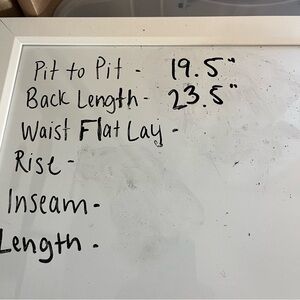 Pit to Pit - 19.5"
Back Length - 23.5"
Waist Flat Lay -
Rise -
Inseam -
Length -